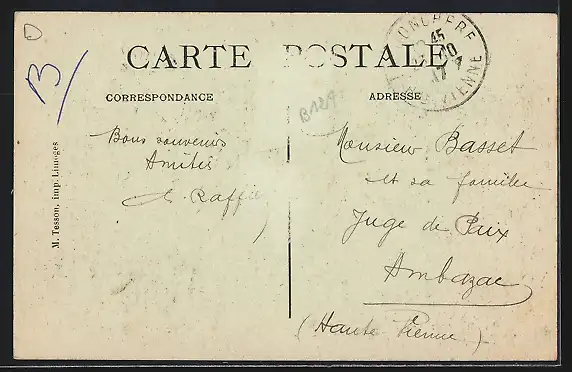 CARTE POSTALE
CORRESPONDANCE
ADRESSE
B
B129
M. Tesson, imp. Limoges
Bons souvenirs
Amitiés
Raffie
Monsieur Basset
et sa famille
Juge de Paix
Ambazac
(Haute Vienne)
45
VIENNE